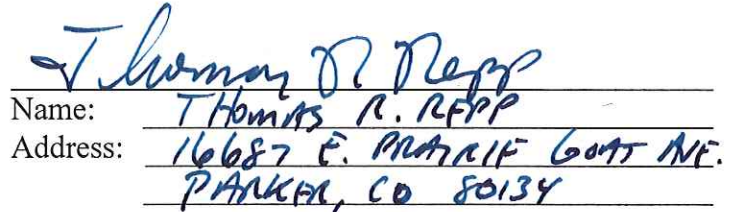 Thomas R Repp
Name: THOMAS R. REPP
Address: 16687 E. PRAIRIE GOAT AVE.
PARKER, CO 80134